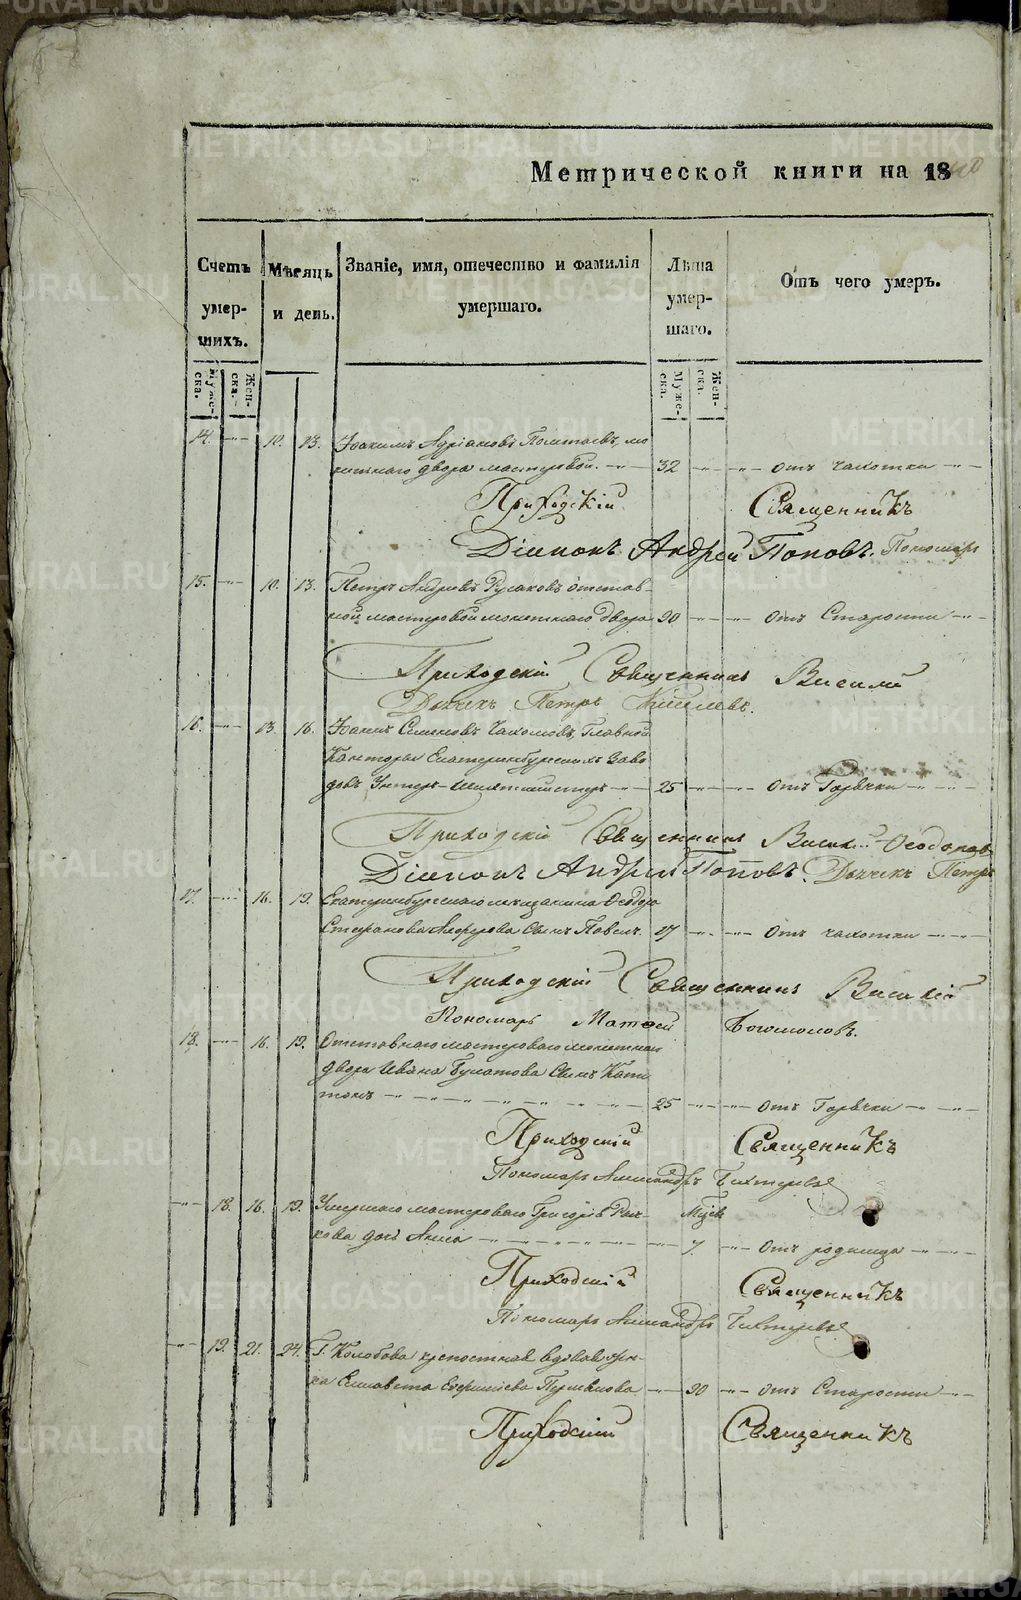 Метрической книги на 1840
Счетъ умер-шихъ.
Мѣсяцъ и день.
Званіе, имя, отечество и фамилія умершаго.
Лѣта умер-шаго.
Отъ чего умеръ.
Муже-ска.
Жен-ска.
Муже-ска.
Жен-ска.
14. 10. 13. Іоакимъ Адріановъ мо
нетнаго двора мастеровой. 32 отъ чахотки
Приходскій Священникъ
Діаконъ Андрей Поповъ. Пономарь
15. 10. 13. Петръ Андреевъ Русаковъ отстав-
ной мастеровой монетнаго двора 90 отъ Старости
Приходскій Священникъ Василій
Дьячекъ Петръ Киселевъ.
16. 13. 16. Іоаннъ Симеоновъ Главной
Канторы Екатеринбургскихъ Заво
довъ Унтеръ-Шихтмейстеръ 25 отъ Горячки
Приходскій Священникъ Васил. Ѳеодоровъ
Діаконъ Андрей Поповъ. Дьячекъ Петръ
17. 16. 19. Екатеринбургскаго мещанина Ѳеодора
Стефанова Сынъ Павелъ. 17 отъ чахотки
Приходскій Священникъ Василій
Пономарь Матѳей Богомоловъ.
18. 16. 19. Отставнаго мастероваго монетнаго
двора Ивана Булатова Сынъ Капи
тонъ 25 отъ Горячки
Приходскій Священникъ
Пономарь Александръ
18. 16. 19. Умершаго мастероваго Григорія Рач- Мцев
кова дочь Анна 7 отъ родимца
Приходскій Священникъ
Пономарь Александръ
19. 21. 24. Г. Колобова крепостная вдовая жон-
ка Елисавета 90 отъ Старости
Приходскій Священникъ
METRIKI.GASO-URAL.RU